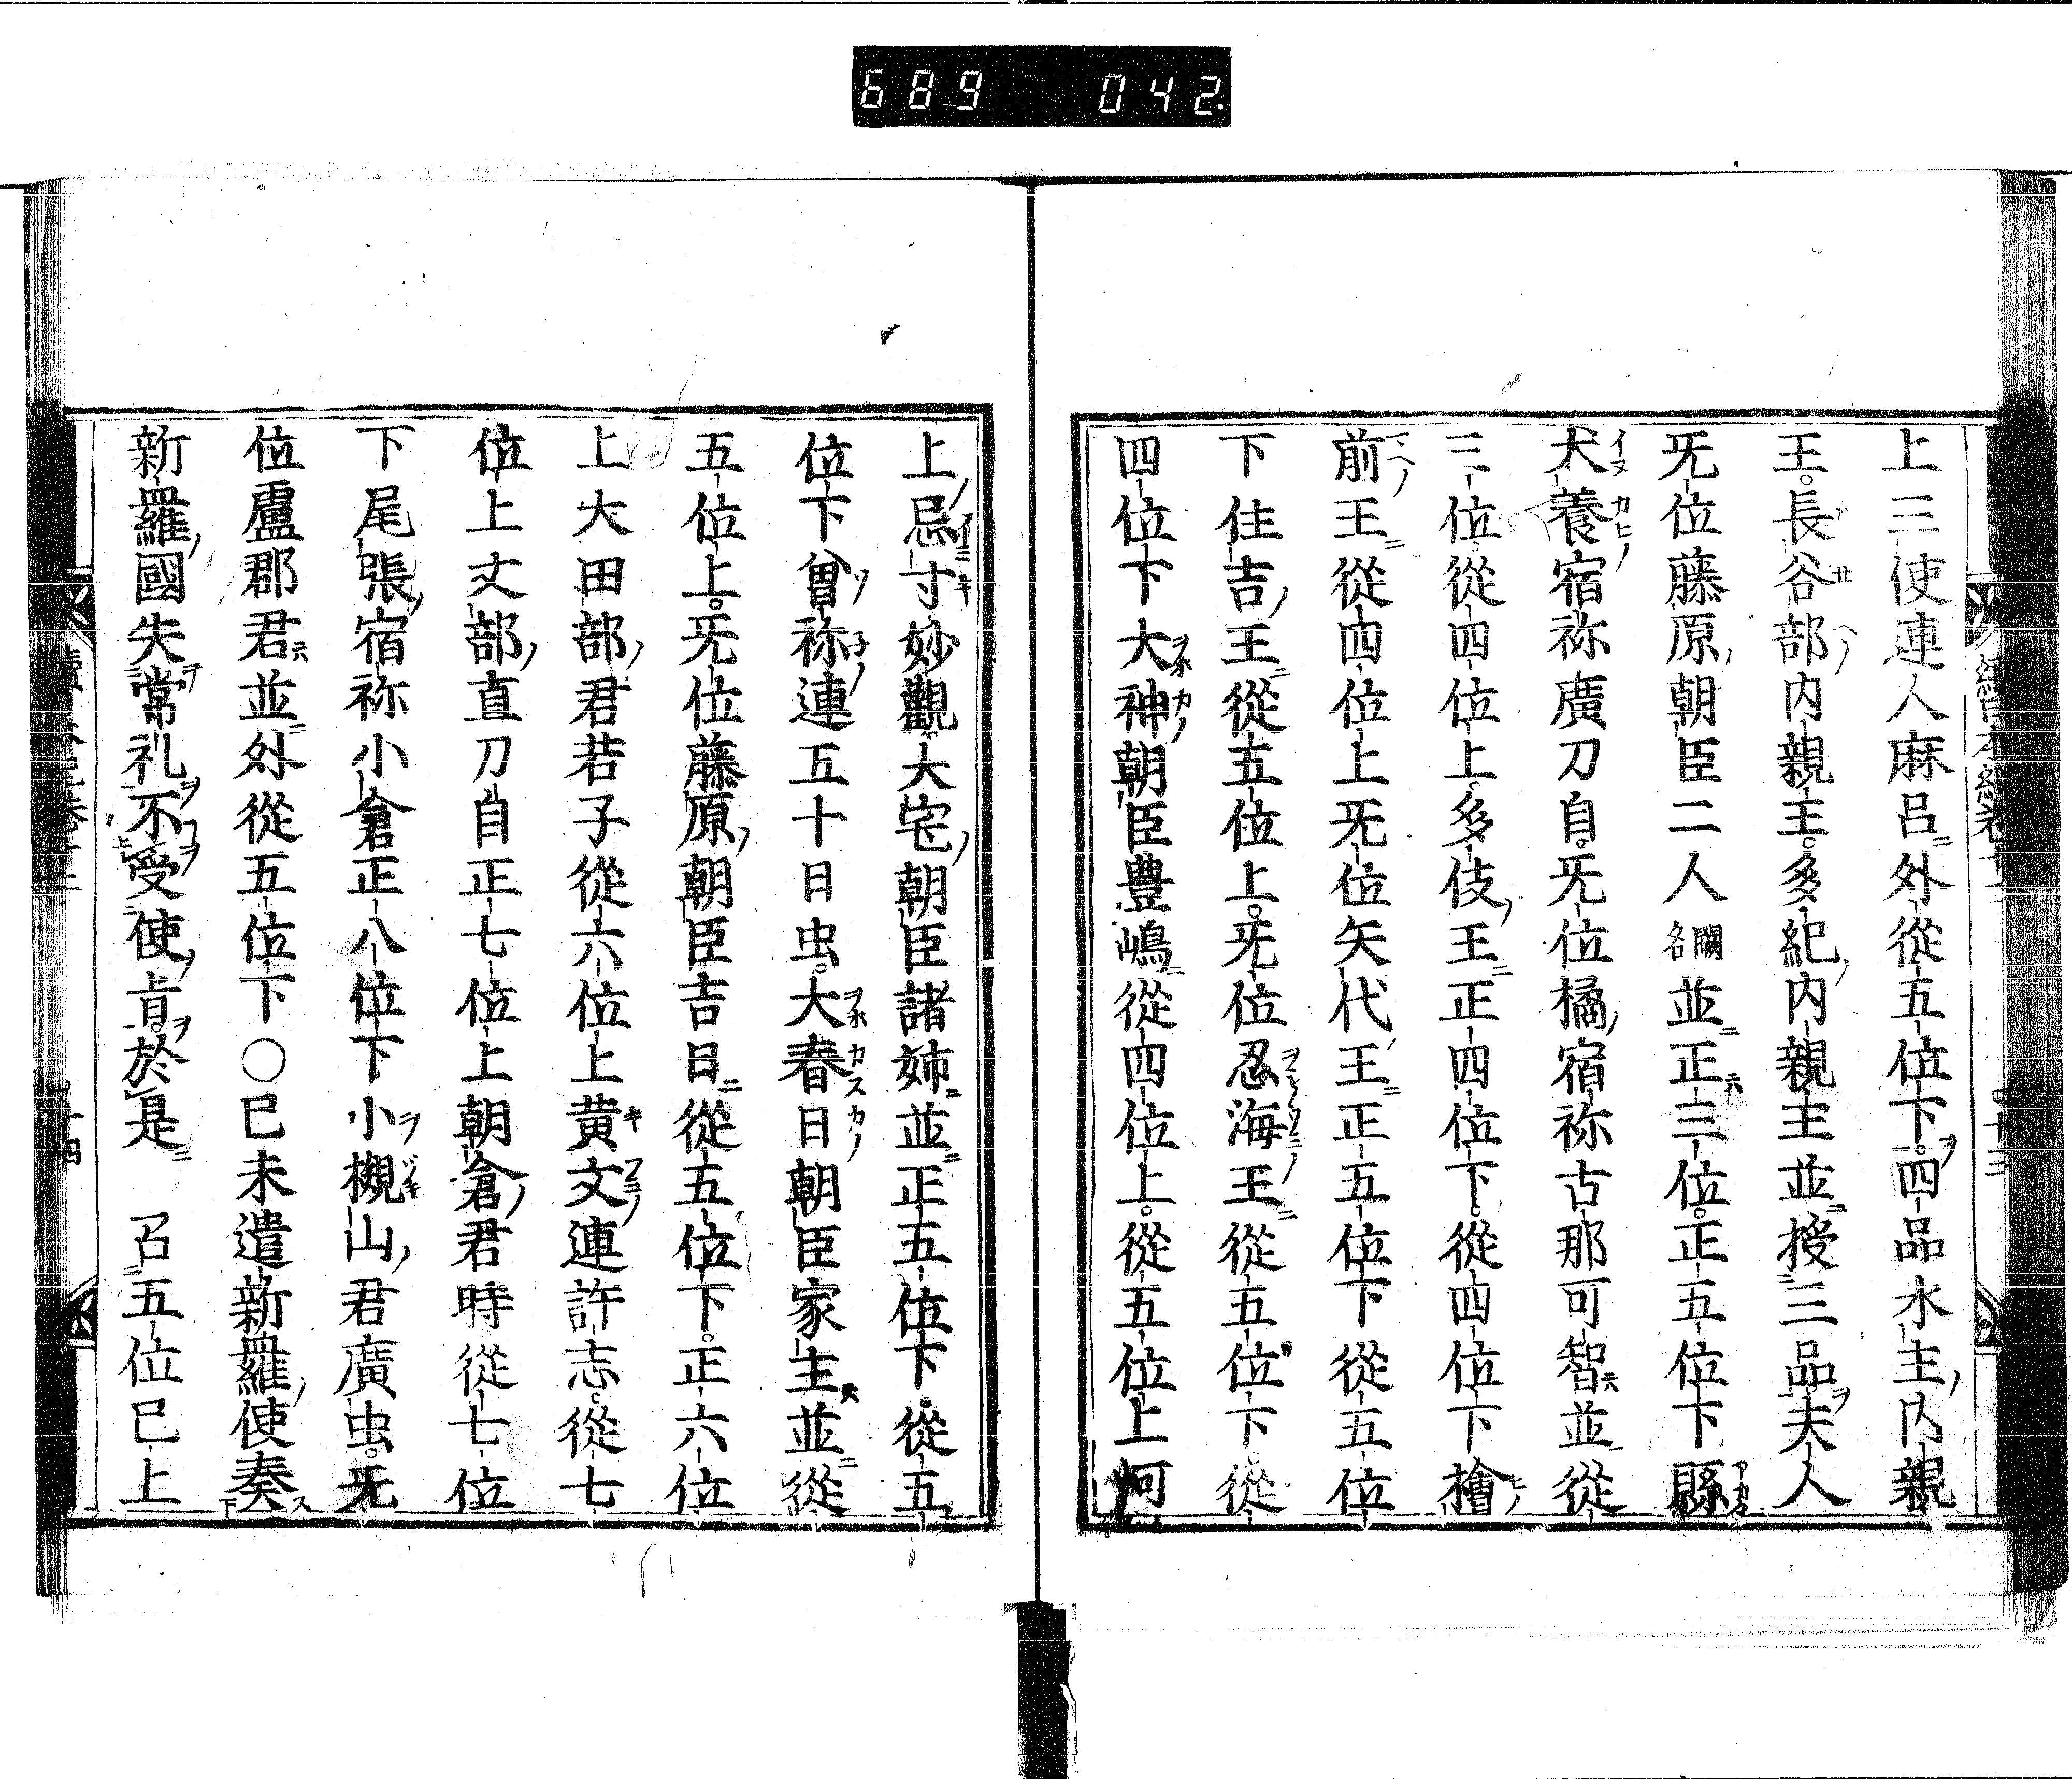 689 042
上三使連人麻呂外從五位下四品水主内親
王長谷部内親王多紀内親王並授三品夫人
旡位藤原朝臣二人闕名並正三位正五位下縣
犬養宿祢廣刀自旡位橘宿祢古那可智並從
三位從四位上多伎王正四位下從四位下檜
前王從四位上旡位矢代王正五位下從五位
下住吉王從五位上旡位忍海王從五位下從
四位下大神朝臣豊嶋從四位上從五位上河
上忌寸妙觀大宅朝臣諸姉並正五位下從五
位下曾祢連五十日虫大春日朝臣家主並從
五位上旡位藤原朝臣吉日從五位下正六位
上大田部君若子從六位上黄文連許志從七
位上丈部直刀自正七位上朝倉君時從七位
下尾張宿祢小倉正八位下小槻山君廣虫旡
位盧郡君並外從五位下○已未遣新羅使奏
新羅國失常礼不受使㫖於是 召五位已上